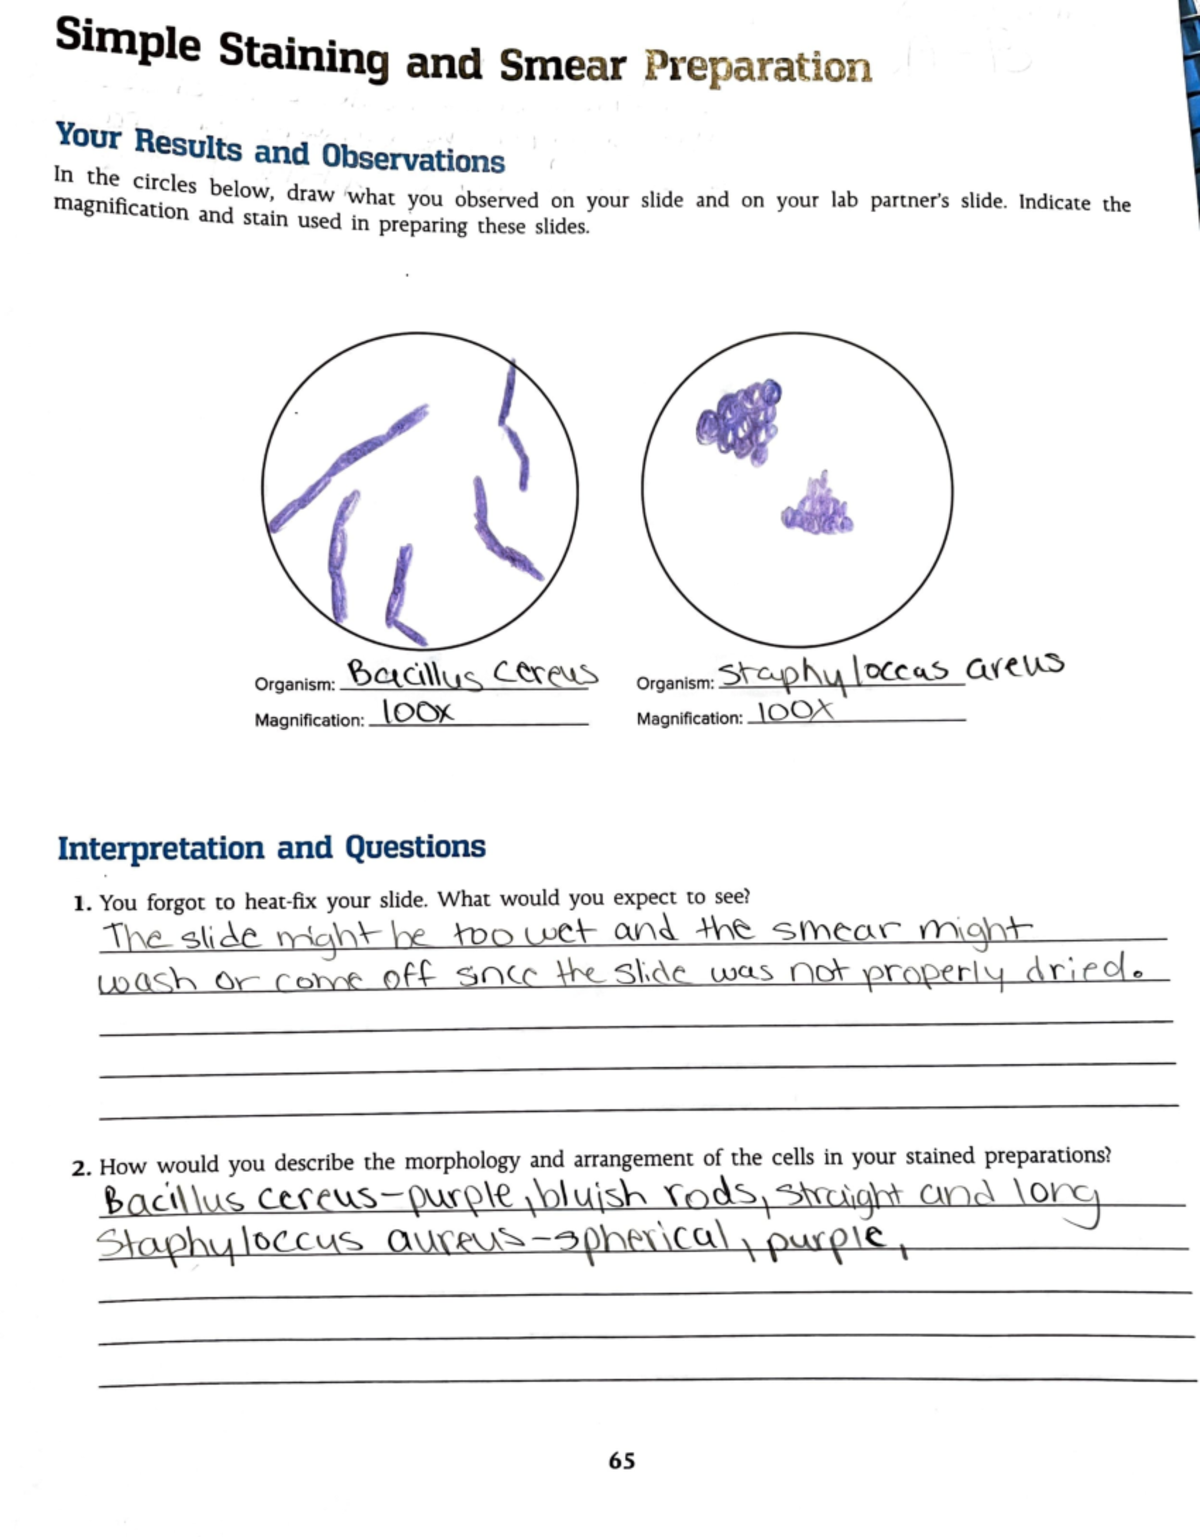 Simple Staining and Smear Preparation
Your Results and Observations
In the circles below, draw what you observed on your slide and on your lab partner's slide. Indicate the
magnification and stain used in preparing these slides.
Organism: Bacillus cereus
Magnification: 100x
Organism: Staphyloccas areus
Magnification: 100X
Interpretation and Questions
1. You forgot to heat-fix your slide. What would you expect to see?
The slide might be too wet and the smear might
wash or come off since the slide was not properly dried.
2. How would you describe the morphology and arrangement of the cells in your stained preparations?
Bacillus cereus-purple, bluish rods, straight and long
Staphyloccus aureus-spherical, purple,
65